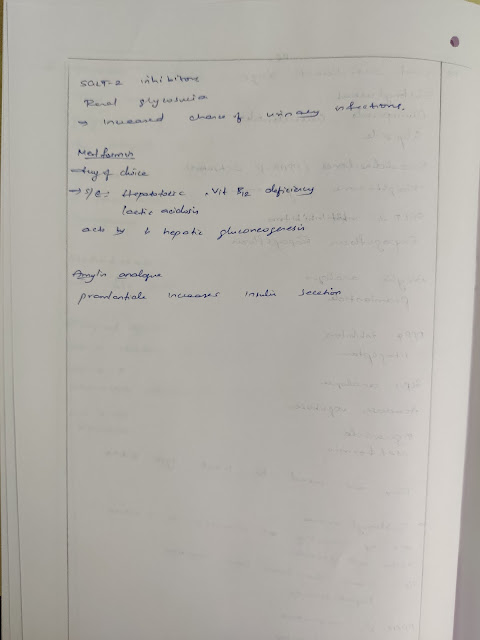 SGLT-2 inhibitors
Renal glycosuria
→ Increased chance of urinary infections.
Metformin
→ drug of choice
→ S/E: Hepatotoxic, Vit B12 deficiency
lactic acidosis
acts by ↓ hepatic gluconeogenesis
Amylin analogue
pramlintide increases insulin secretion